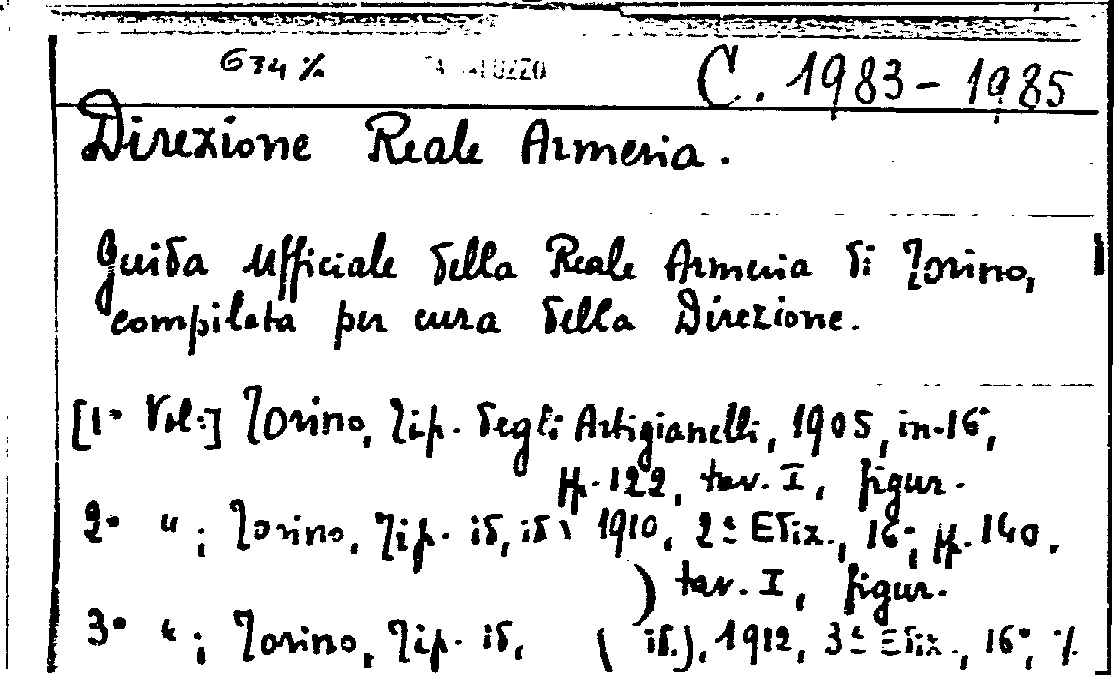 634 %
C. 1983-1985
Direzione Reale Armeria.
Guida Ufficiale della Reale Armeria di Torino,
compilata per cura della Direzione.
[1° Vol:] Torino, Tip. degli Artigianelli, 1905, in-16°,
pp. 122, tav. I, figur.
2° " ; Torino, Tip. id, id 1910, 2ª Ediz., 16°, pp. 140.
) tav. I, figur.
3° " ; Torino, Tip. id, ( id.), 1912, 3ª Ediz., 16°, %